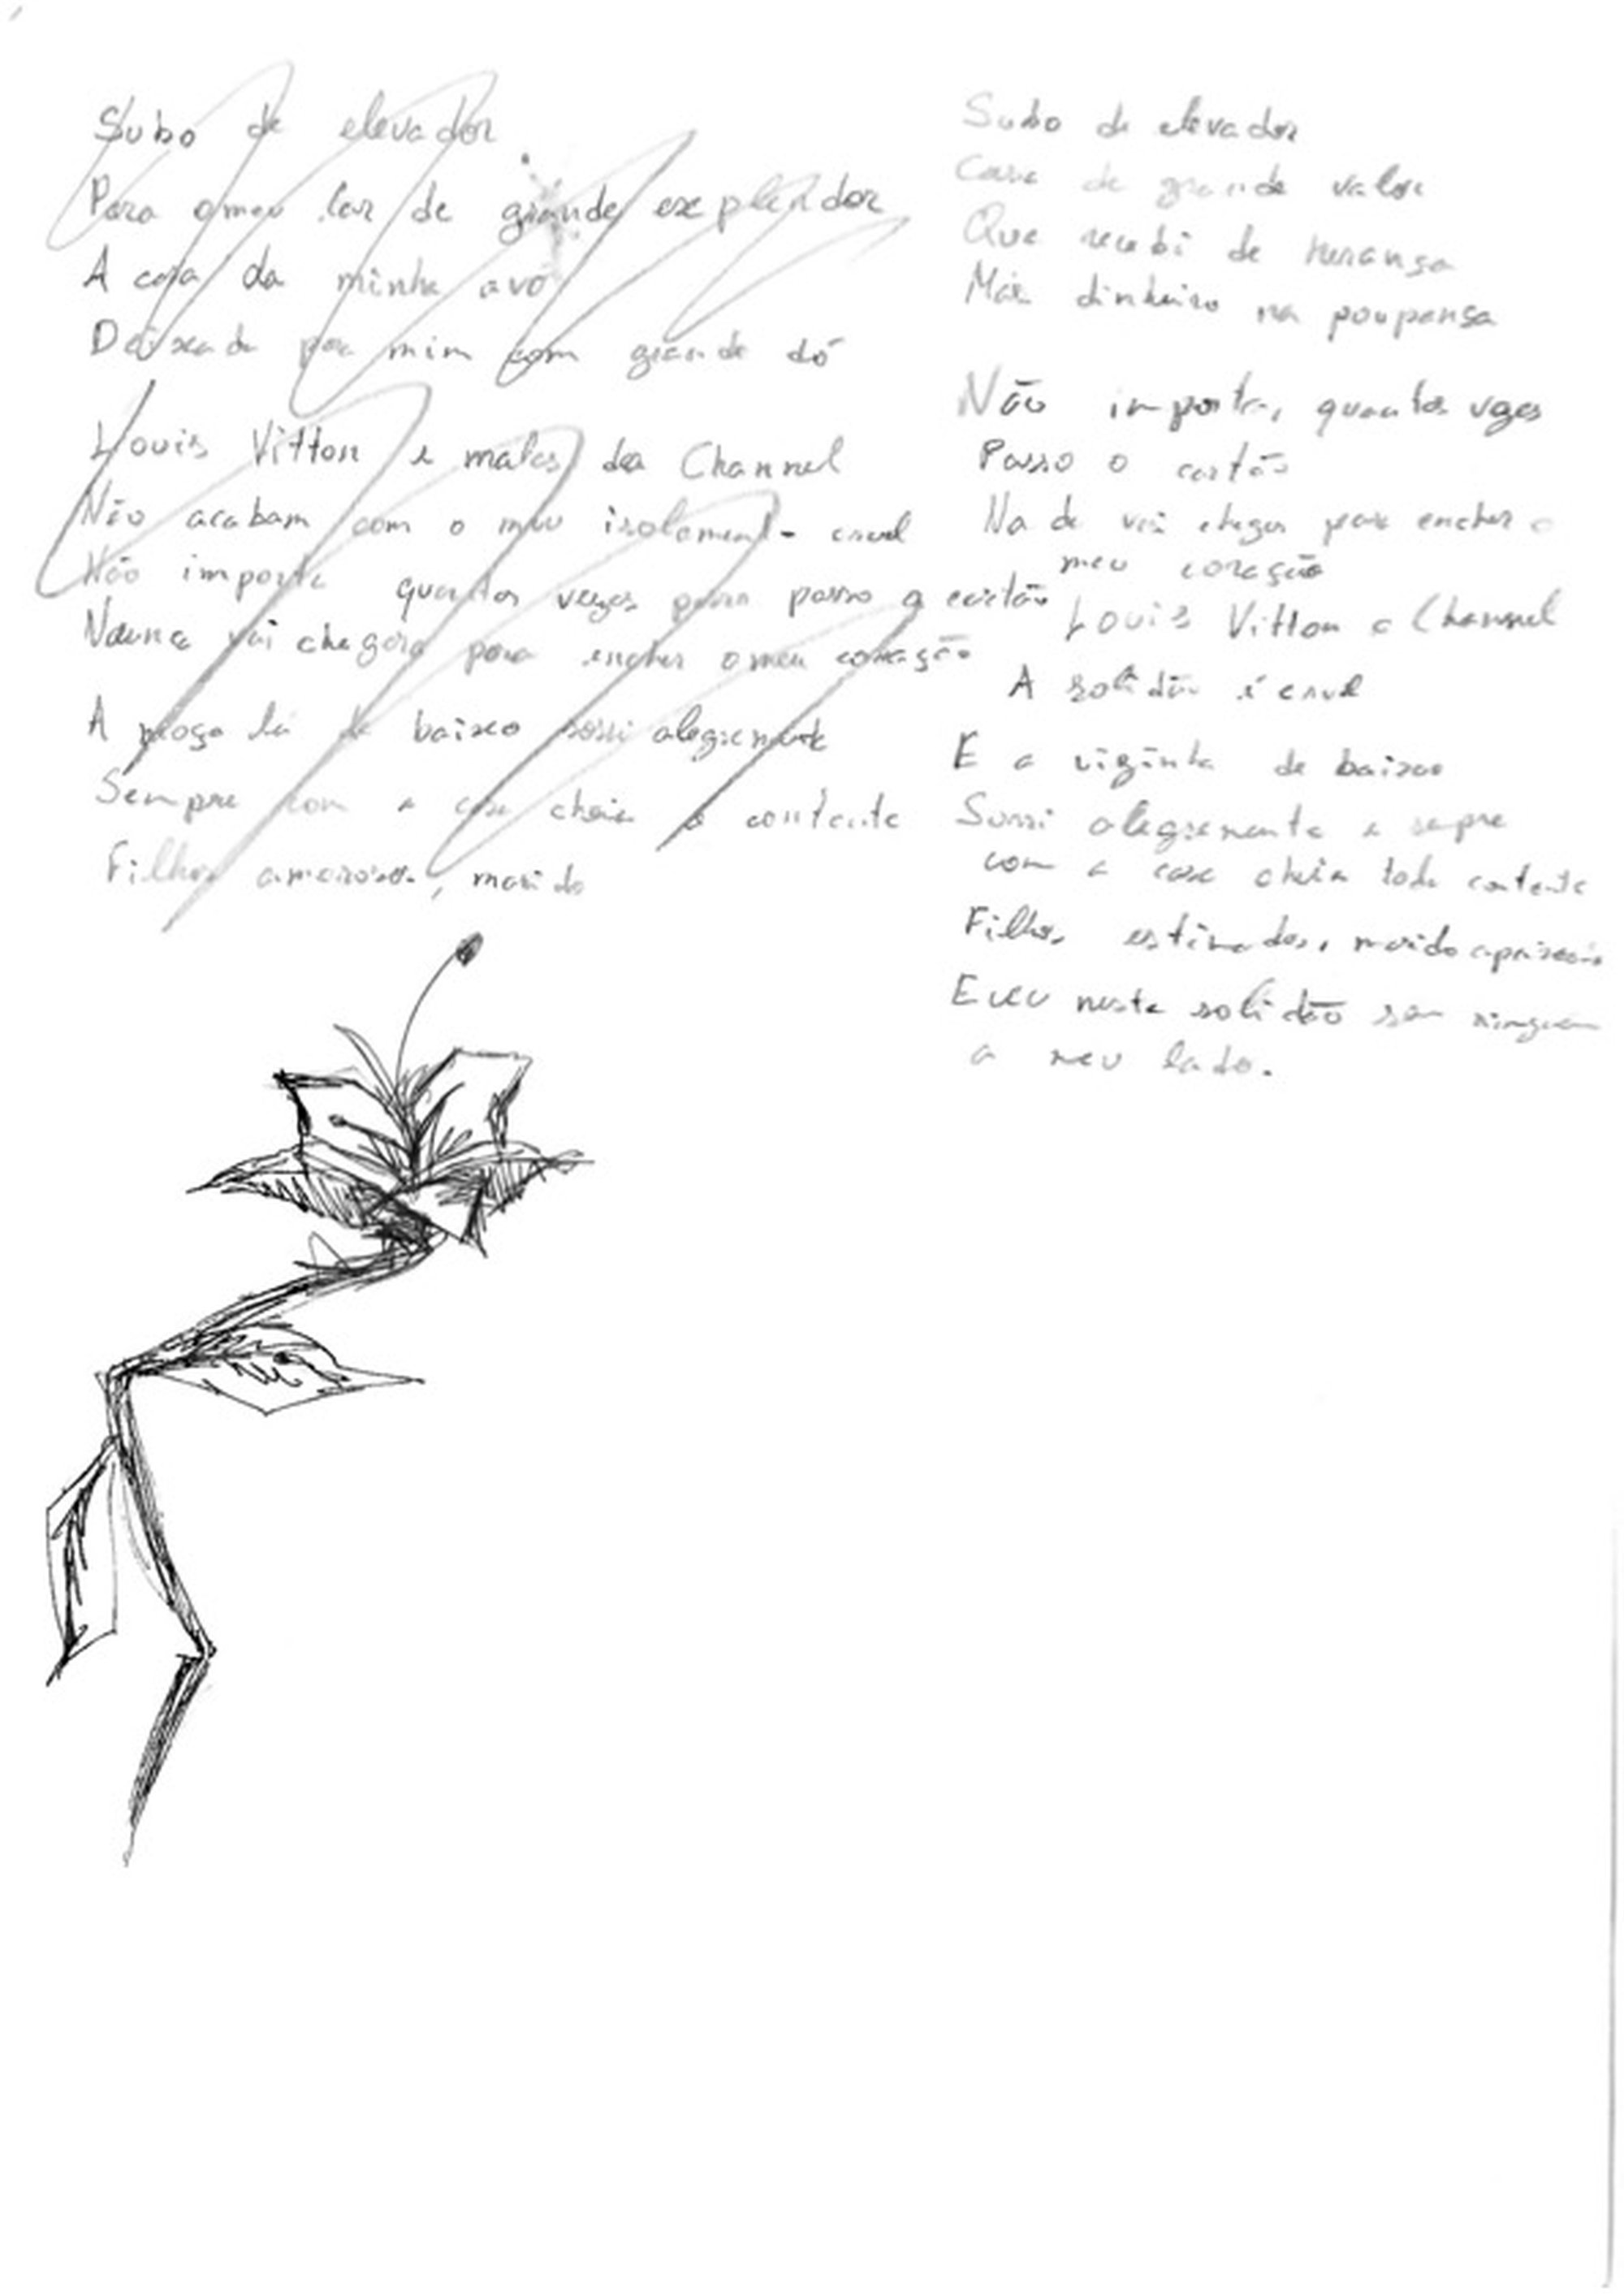 Subo de elevador
Para o meu lar de grande explendor
A casa da minha avó
Deixada por mim com grande dó
Louis Vitton e malas da Channel
Não acabam com o meu isolamento cruel
Não importa quantas vezes passo o cartão
Nunca vai chegar para encher o meu coração
A moça lá de baixo sorri alegremente
Sempre com a casa cheia e contente
Filhos amorosos, marido
Subo de elevador
Casa de grande valor
Que recebi de herança
Mais dinheiro na poupansa
Não importa, quantas vezes
Passo o cartão
Na da vai chegar para encher o
meu coração
Louis Vitton e Channel
A solidão é cruel
E a vizinha de baixo
Sorri alegremente e sepre
com a casa cheia toda contente
Filhos estimados, marido
E eu nesta solidão sem ninguem
a meu lado.